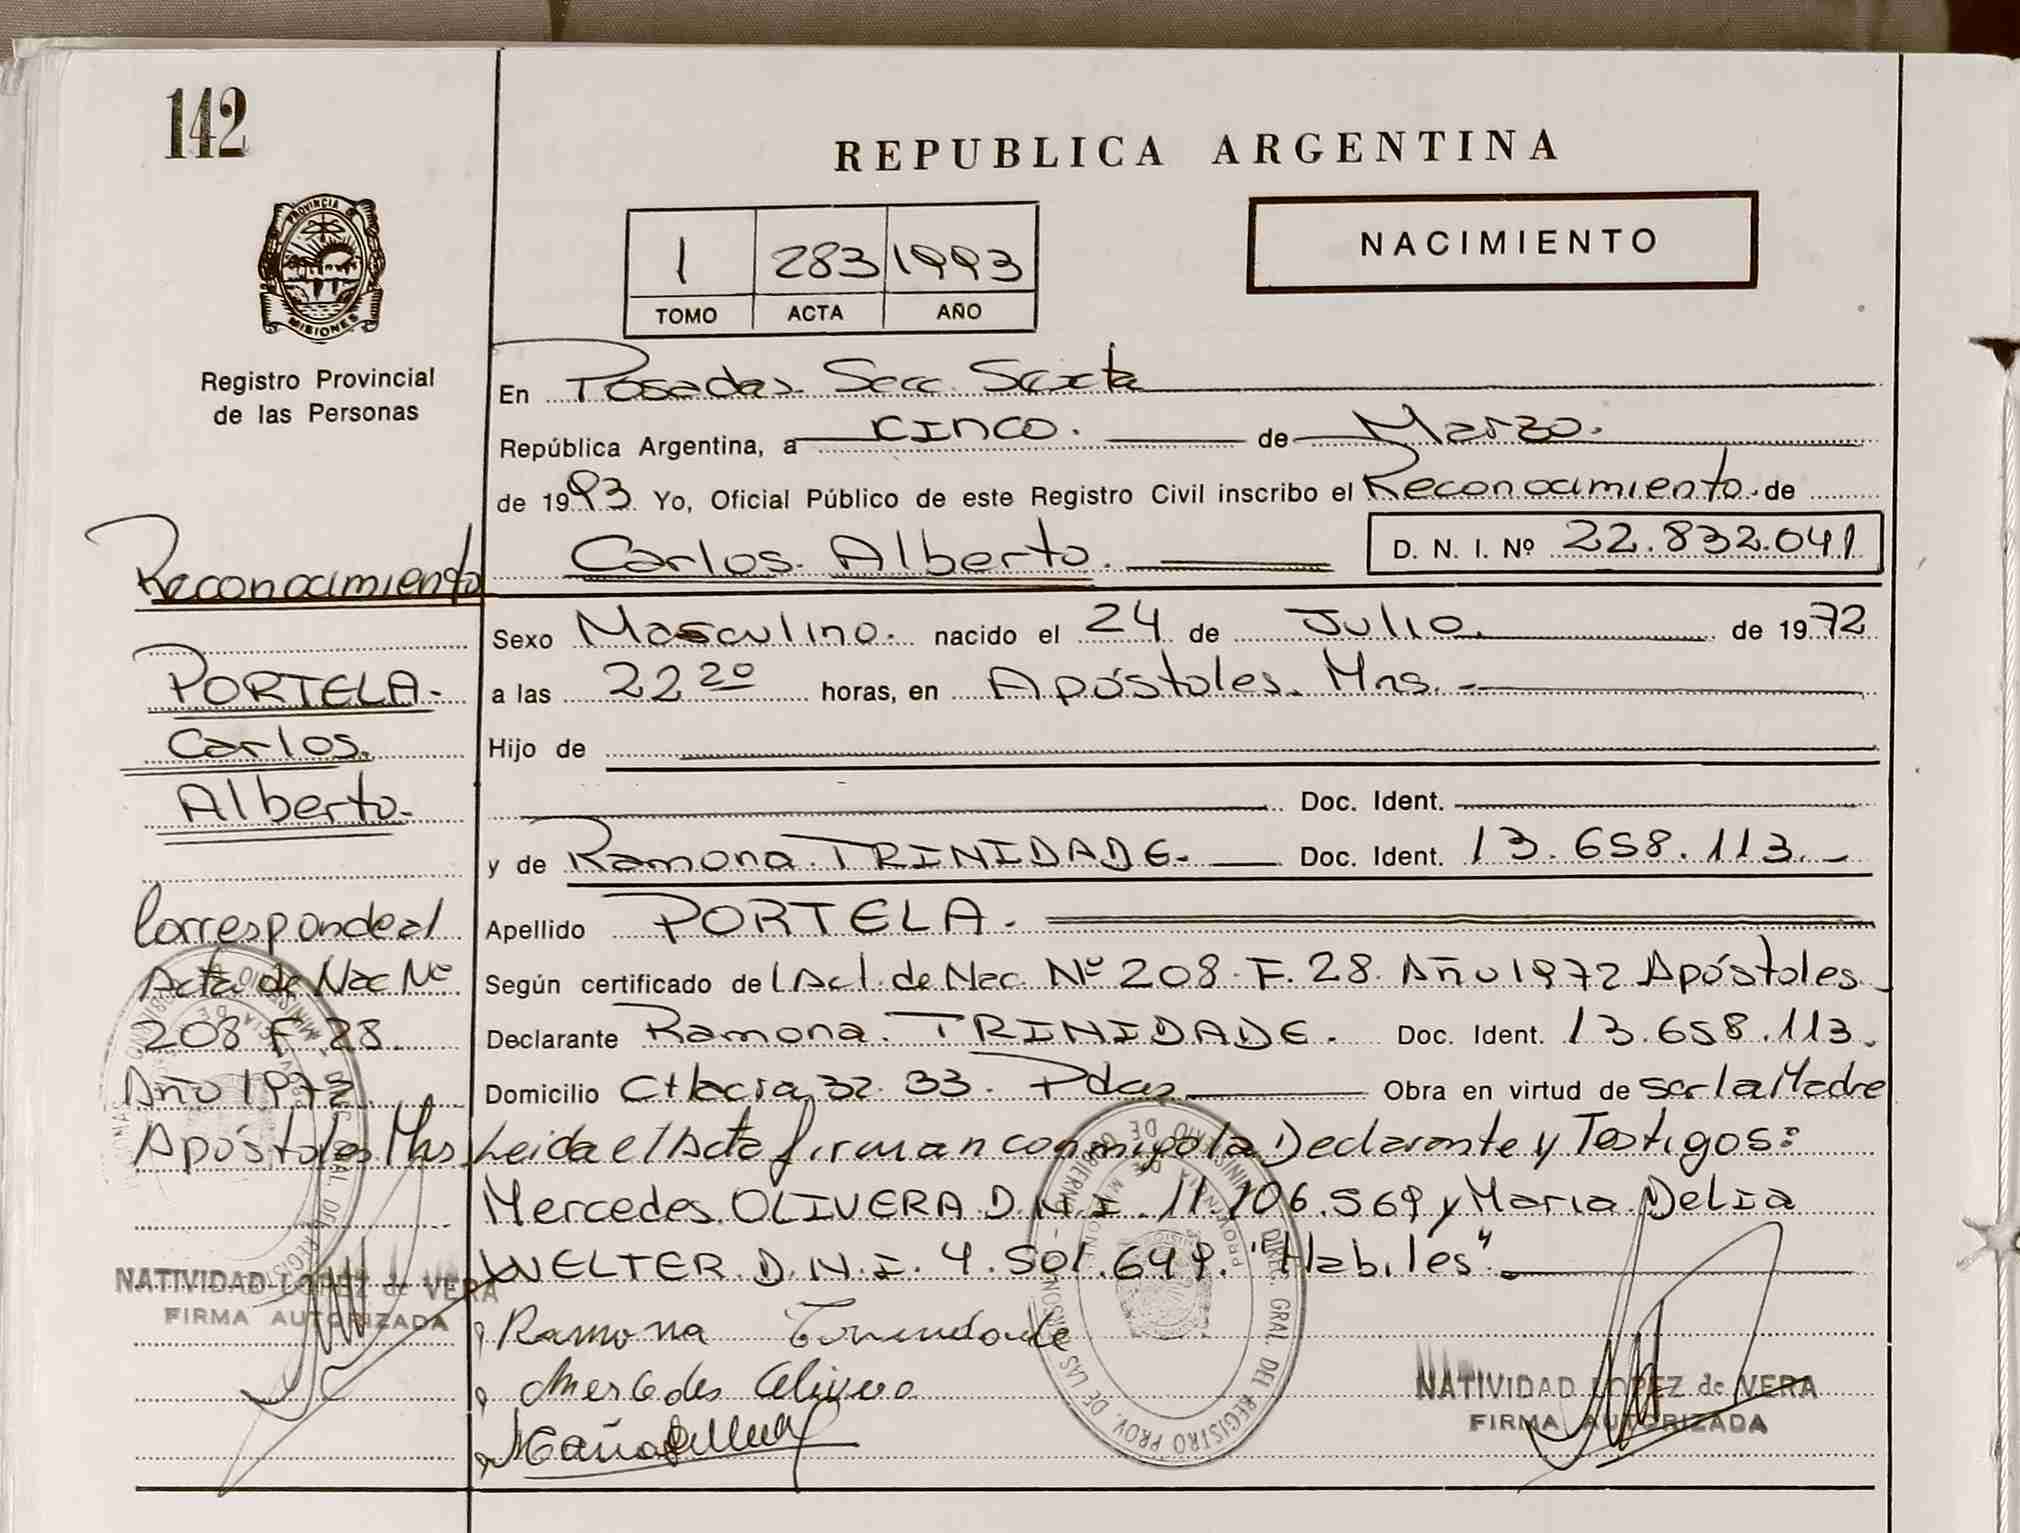 142
REPUBLICA ARGENTINA
PROVINCIA DE
MISIONES
Registro Provincial
de las Personas
1 283 1993
TOMO ACTA AÑO
NACIMIENTO
En Posadas. Secc. Sexta
República Argentina, a CINCO. de Marzo.
de 1993 Yo, Oficial Público de este Registro Civil inscribo el Reconocimiento de
Carlos Alberto. D. N. I. Nº 22.832.041
Sexo Masculino. nacido el 24 de Julio. de 1972
a las 22 20 horas, en Apóstoles. Mns.
Hijo de
Doc. Ident.
y de Ramona TRINIDADE. Doc. Ident. 13.658.113.
Apellido PORTELA.
Según certificado del Act. de Nac. Nº 208. F. 28. Año 1972 Apóstoles
Declarante Ramona TRINIDADE. Doc. Ident. 13.658.113.
Domicilio 32.33. Pdas Obra en virtud de ser la Madre
Leida el Acta firman conmigo la Declarante y Testigos:
Mercedes OLIVERA D.N.I. 11.106.569 y Maria Delia
WELTER D.N.I. 4.501.649. "Habiles"
Ramona
Mercedes Olivera
Reconocimiento
PORTELA.
Carlos
Alberto.
Corresponde al
Acta de Nac Nº
208 F. 28.
Año 1972
Apóstoles Mns
NATIVIDAD LOPEZ de VERA
FIRMA AUTORIZADA
NATIVIDAD LOPEZ de VERA
FIRMA AUTORIZADA
DIREC. GRAL. DEL REGISTRO PROV. DE LAS PERSONAS
MINISTERIO DE GOBIERNO
PROVINCIA DE MISIONES